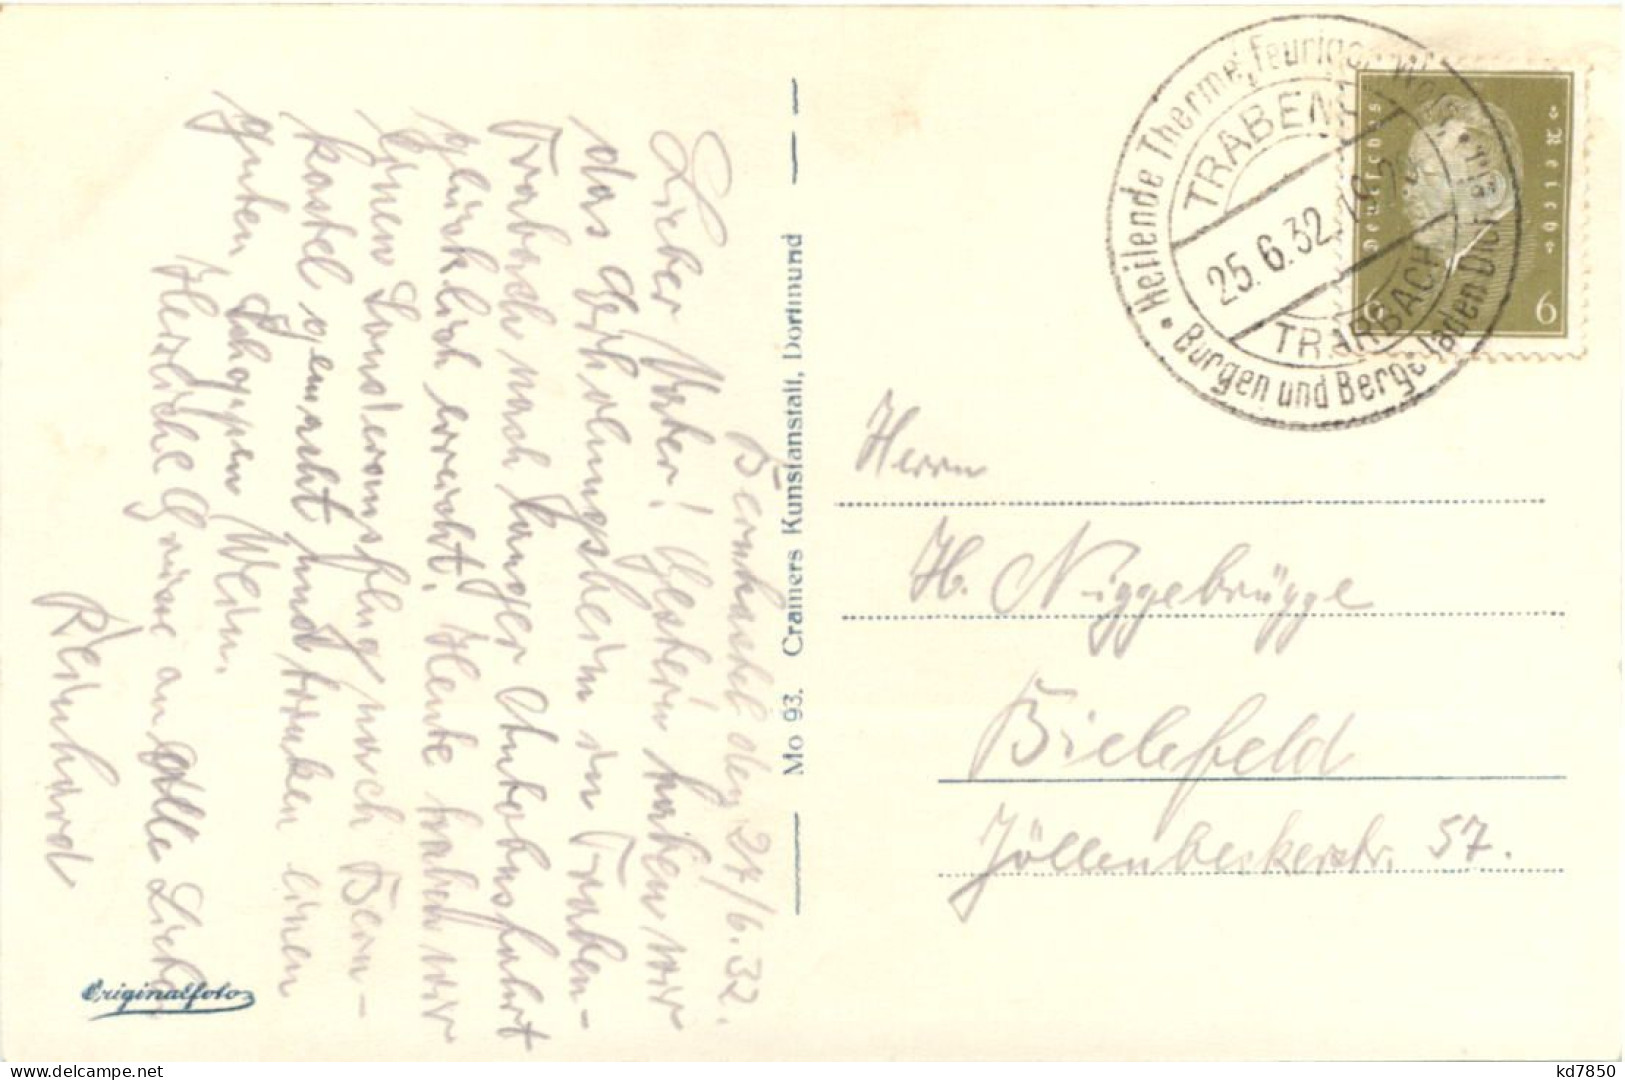 Bernkastel den 24/6.32.
Lieber Vater! Gestern haben wir
das Erholungsheim in Traben-
Trarbach nach langer Autobusfahrt
glücklich erreicht. Heute haben wir
einen Landerausflug nach Bern-
kastel gemacht und trinken einen
guten Schoppen Wein.
Herzliche Grüsse an alle Lieben
Reinhard
Originalfoto
Mo 93. Cramers Kunstanstalt, Dortmund
• Heilende Therme, Feuriger Wein •
Burgen und Berge laden Dich ein
TRABEN-
25.6.32.19
TRARBACH
Deutsches Reich
6 6
Herrn
H. Niggebrügge
Bielefeld
Jöllenbeckerstr. 57.
kd7850